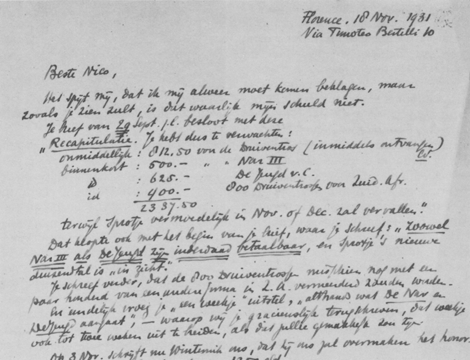 Florence, 18 Nov. 1931
Via Timoteo Bertelli 10
Beste Nico,
Het spijt mij, dat ik mij alweer moet komen beklagen, maar
zooals je zien zult, is dit waarlijk mijn schuld niet.
Je brief van 29 Sept. j.l. besloot met deze
"Recapitulatie. Je hebt dus te verwachten:
onmiddellijk : 812.50 von de Druiventros (inmiddels ontvangen)
binnenkort : 500.— " " Nar III
D : 625.— De Jeugd v. C.
id : 400.— 800 Druiventrossen voor Zuid. Afr.
2337.50
terwijl Sprotje vermoedelijk in Nov. of Dec. zal vervallen."
Dat klopte ook met het begin van je brief, waar je schreef: "Zoowel
Nar III als De Jeugd zijn inderdaad betaalbaar, en Sprotje's nieuwe
duizendtal is "in zicht".
Je schreef verder, dat de 800 Druiventrossen misschien nog met een
paar honderd van een andere firma in Z.A. vermeerderd zouden worden.
En eindelijk vroeg je "een weekje" uitstel, "althans wat De Nar en
De Jeugd aangaat"; — waarop wij je gracieuslijk terugschreven, dat weekje
ook tot twee weken uit te breiden, als dit jullie gemakkelijk zou zijn
Op 3 Nov. schrijft nu Winterink ons, dat hij ons zal overmaken het honor